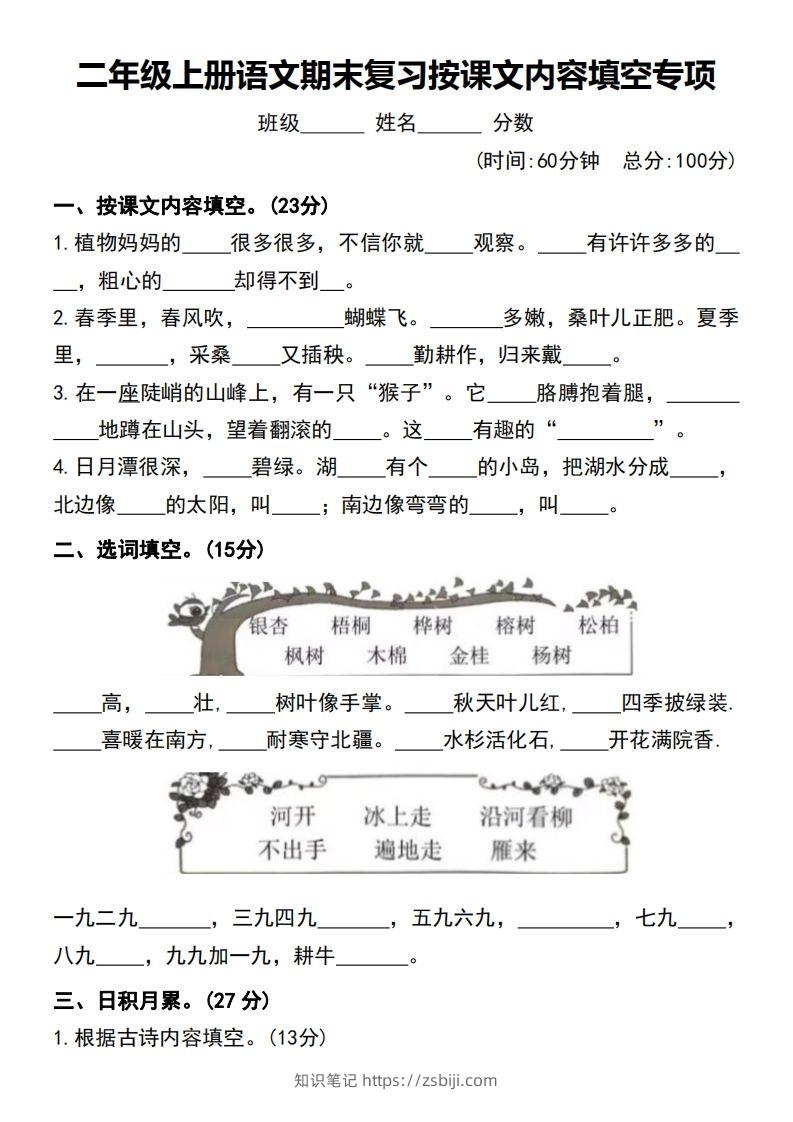 二年级上册语文期末复习按课文内容填空专项
班级______ 姓名______ 分数
(时间:60分钟 总分:100分)
一、按课文内容填空。(23分)
1.植物妈妈的____很多很多，不信你就____观察。____有许许多多的__
__，粗心的______却得不到__。
2.春季里，春风吹，________蝴蝶飞。______多嫩，桑叶儿正肥。夏季
里，______，采桑____又插秧。____勤耕作，归来戴____。
3.在一座陡峭的山峰上，有一只“猴子”。它____胳膊抱着腿，______
____地蹲在山头，望着翻滚的____。这____有趣的“________”。
4.日月潭很深，____碧绿。湖____有个____的小岛，把湖水分成____，
北边像____的太阳，叫____；南边像弯弯的____，叫____。
二、选词填空。(15分)
银杏 梧桐 桦树 榕树 松柏
枫树 木棉 金桂 杨树
____高，____壮,____树叶像手掌。____秋天叶儿红,____四季披绿装.
____喜暖在南方,____耐寒守北疆。____水杉活化石,____开花满院香.
河开 冰上走 沿河看柳
不出手 遍地走 雁来
一九二九______，三九四九______，五九六九，________，七九____，
八九____，九九加一九，耕牛______。
三、日积月累。(27 分)
1.根据古诗内容填空。(13分)
知识笔记 https://zsbiji.com